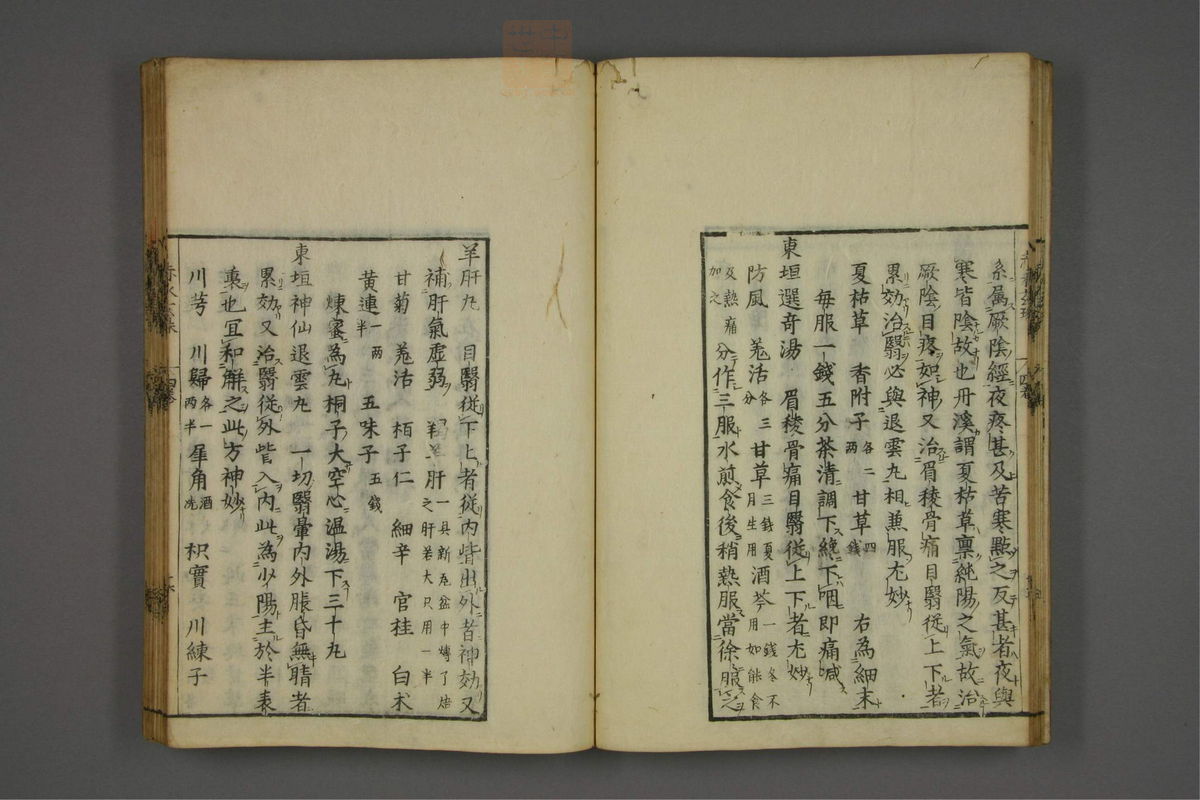 系属厥陰經夜疼甚及苦寒點之反甚者夜與
寒皆陰故也丹溪謂夏枯草禀純陽之氣故治
厥陰目疼如神又治眉稜骨痛目翳従上下者
累効治翳必與退雲丸相兼服尤妙
夏枯草 香附子各二両 甘草四銭 右為細末
毎服一銭五分茶清調下纔下咽即痛減
東垣選奇湯 眉稜骨痛目翳従上下者尤妙
防風 羌活各三分 甘草三銭夏月生用 酒芩一銭冬不用如能食
及熱痛加之 分作三服水煎食後稍熱服當徐服之
羊肝丸 目翳従下上者従内眥出外者神効又
補肝氣虚弱 羊肝一具新瓦盆中煿了焙之肝若大只用一半
甘菊 羌活 栢子仁 細辛 官桂 白朮
黄連一両半 五味子五銭
煉蜜為丸桐子大空心温湯下三十丸
東垣神仙退雲丸 一切翳暈内外脹昏無睛者
累効又治翳従外眥入内此為少陽主於半表
裏也宜和解之此方神妙
川芎 川歸各一両半 犀角酒洗 枳實 川練子